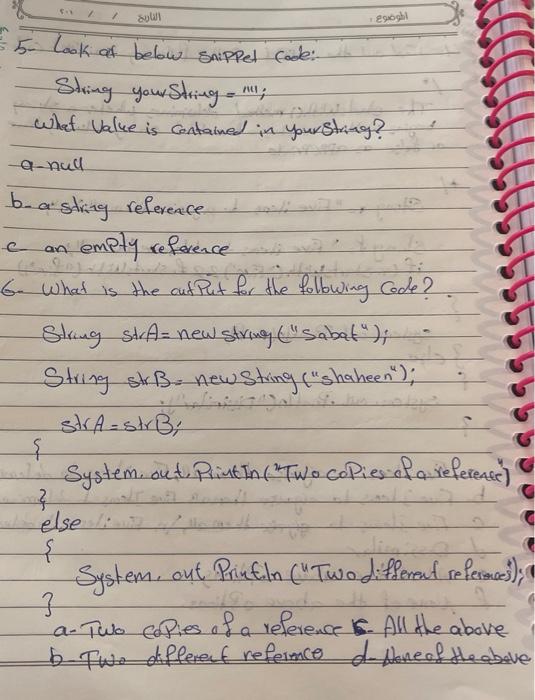 التاريخ
الموضوع
5- Look at below snippet code:
String yourString = "";
What Value is contained in yourString?
a- null
b- a string reference
c- an empty reference
6- What is the output for the following Code?
String strA = new string ("Sabat");
String strB = new String ("shaheen");
strA = strB;
{
System.out.PrintIn("Two copies of a reference")
}
else
{
System.out Println ("Two different references");
}
a- Two copies of a reference c- All the above
b- Two different reference d- None of the above